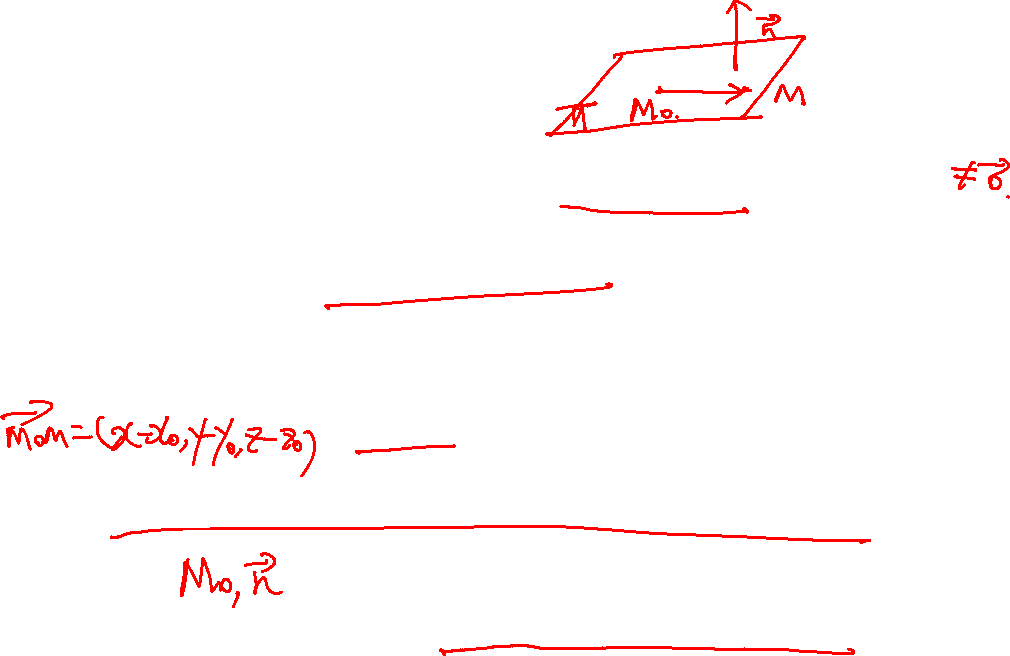 n⃗
M₀. M
π
≠0⃗.
M₀M⃗=(x-x₀,y-y₀,z-z₀)
M₀,n⃗